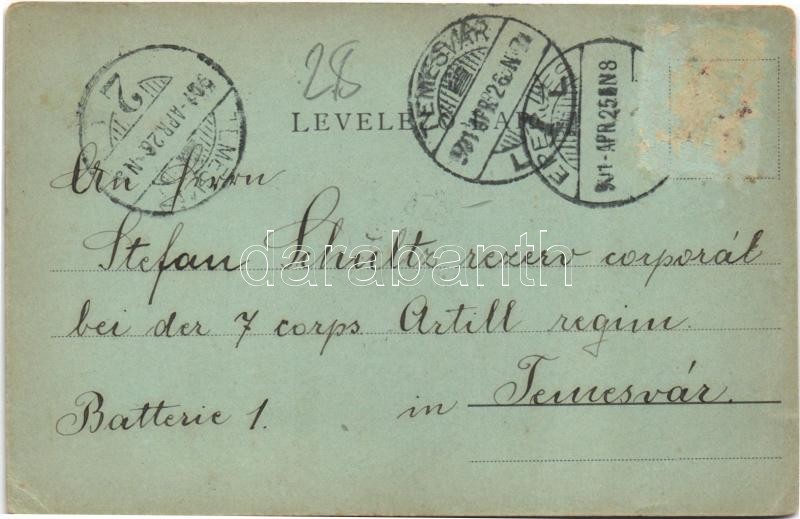 28
TEMESVÁR
901 APR. 26. N
901-APR. 25. N8
901 APR. 26. N
2
LEVELE
An Herrn
Stefan Schultz rezerv corporál
bei der 7 corps Artill regim.
Batterie 1. in Temesvár.
darabanth